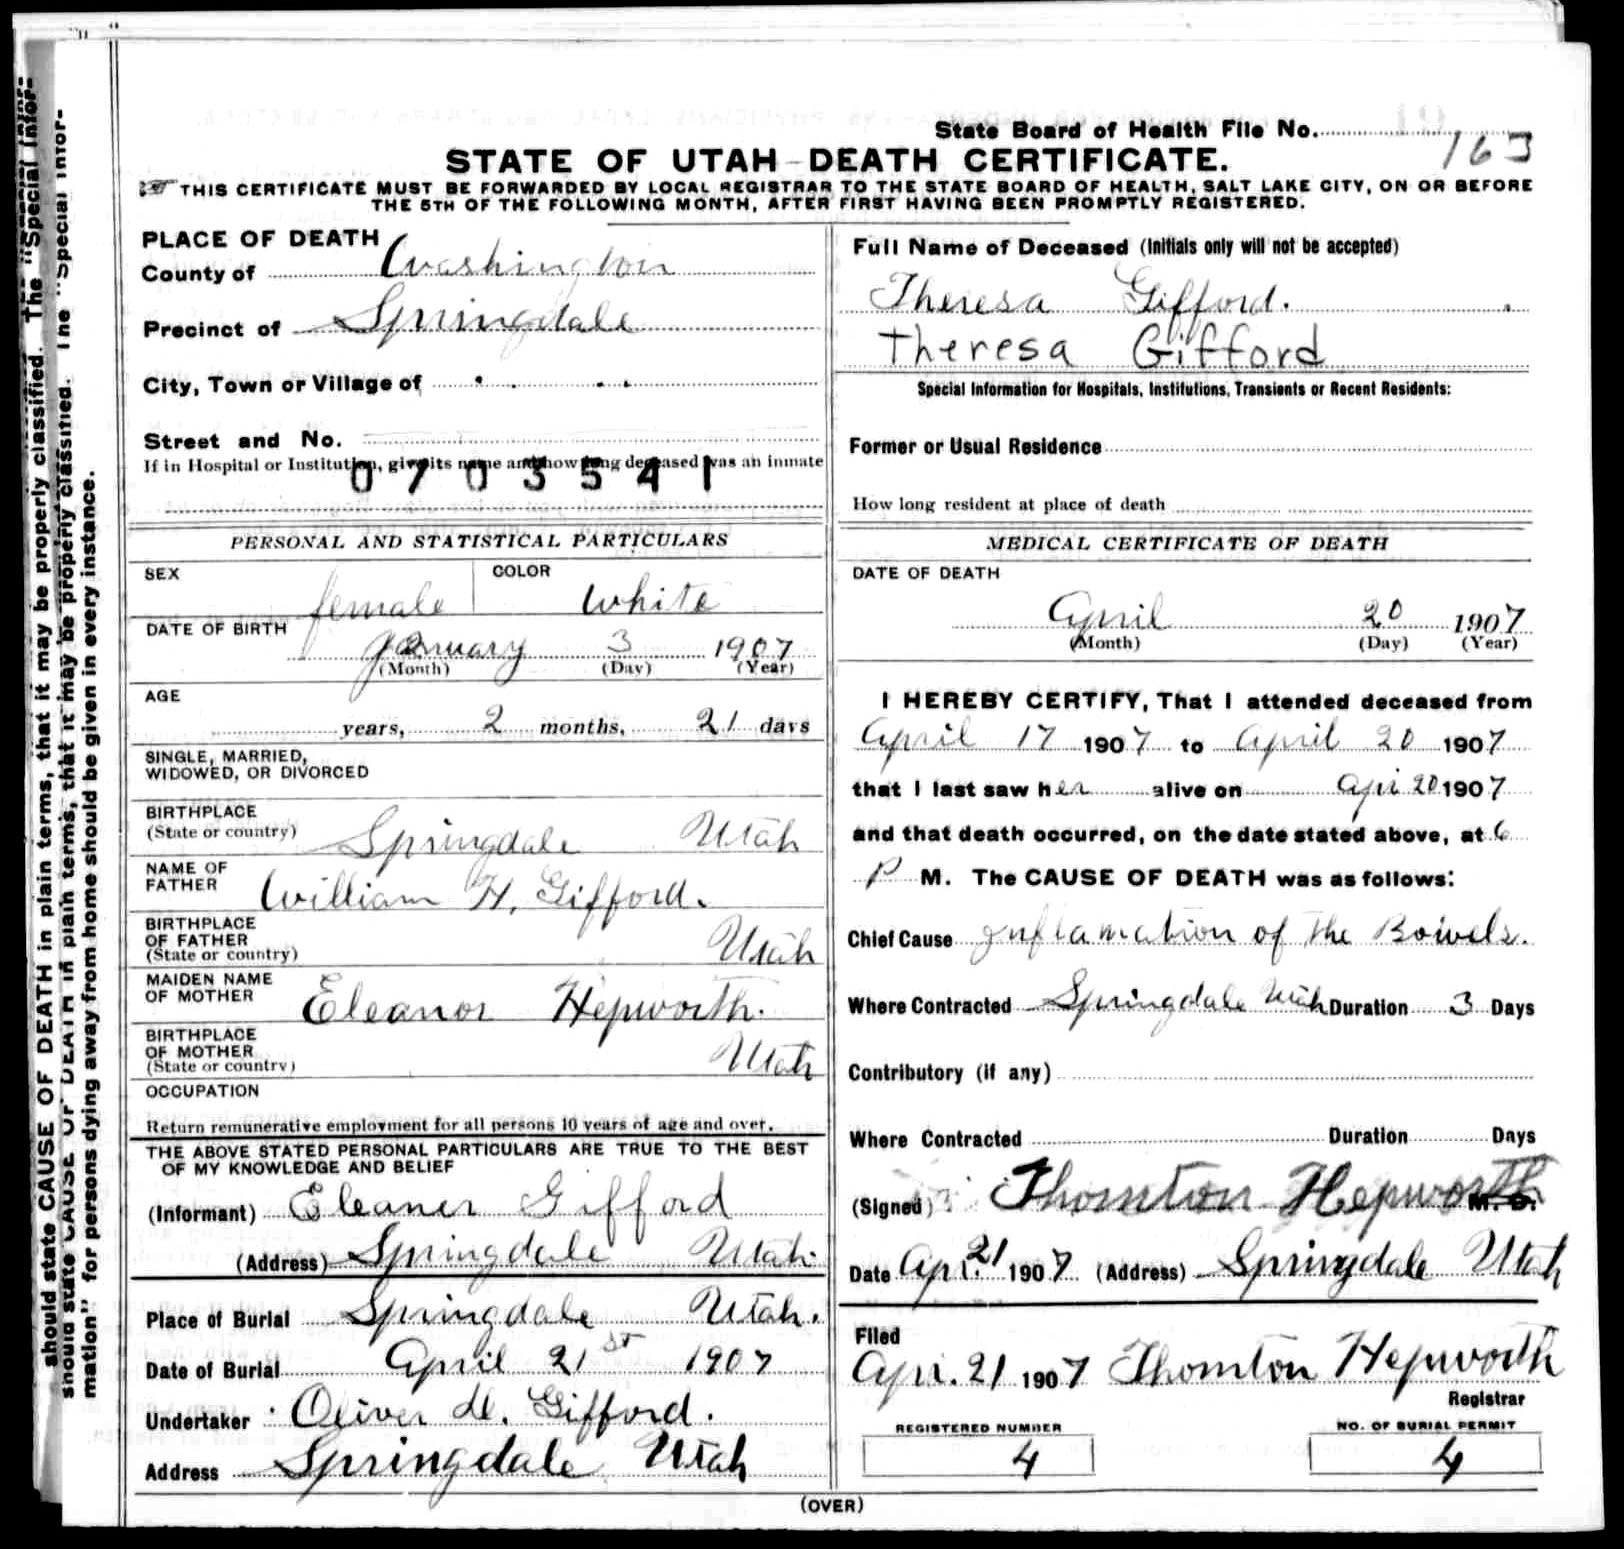 State Board of Health File No. 163
STATE OF UTAH—DEATH CERTIFICATE.
THIS CERTIFICATE MUST BE FORWARDED BY LOCAL REGISTRAR TO THE STATE BOARD OF HEALTH, SALT LAKE CITY, ON OR BEFORE
THE 5TH OF THE FOLLOWING MONTH, AFTER FIRST HAVING BEEN PROMPTLY REGISTERED.
PLACE OF DEATH
County of Washington
Precinct of Springdale
City, Town or Village of
Street and No.
If in Hospital or Institution, give its name and how long deceased was an inmate
0703541
PERSONAL AND STATISTICAL PARTICULARS
SEX female COLOR White
DATE OF BIRTH January 3 1907
(Month) (Day) (Year)
AGE
years, 2 months, 21 days
SINGLE, MARRIED,
WIDOWED, OR DIVORCED
BIRTHPLACE
(State or country) Springdale Utah
NAME OF
FATHER William H. Gifford.
BIRTHPLACE
OF FATHER
(State or country) Utah
MAIDEN NAME
OF MOTHER Eleanor Hepworth.
BIRTHPLACE
OF MOTHER
(State or country) Utah
OCCUPATION
Return remunerative employment for all persons 10 years of age and over.
THE ABOVE STATED PERSONAL PARTICULARS ARE TRUE TO THE BEST
OF MY KNOWLEDGE AND BELIEF
(Informant) Eleaner Gifford
(Address) Springdale Utah
Place of Burial Springdale Utah.
Date of Burial April 21st 1907
Undertaker Oliver D. Gifford.
Address Springdale Utah
Full Name of Deceased (Initials only will not be accepted)
Theresa Gifford.
Theresa Gifford
Special Information for Hospitals, Institutions, Transients or Recent Residents:
Former or Usual Residence
How long resident at place of death
MEDICAL CERTIFICATE OF DEATH
DATE OF DEATH
April 20 1907
(Month) (Day) (Year)
I HEREBY CERTIFY, That I attended deceased from
April 17 1907 to April 20 1907
that I last saw her alive on Apri 20 1907
and that death occurred, on the date stated above, at 6
P M. The CAUSE OF DEATH was as follows:
Chief Cause Inflamation of the Bowels.
Where Contracted Springdale Utah Duration 3 Days
Contributory (if any)
Where Contracted Duration Days
(Signed) Thornton Hepworth M. D.
Date Apri. 21 1907 (Address) Springdale Utah
Filed
Apri. 21 1907 Thornton Hepworth
Registrar
REGISTERED NUMBER
4
NO. OF BURIAL PERMIT
4
(OVER)
should state CAUSE OF DEATH in plain terms, that it may be properly classified. The "Special Infor-
should state CAUSE OF DEATH in plain terms, that it may be properly classified. The "Special Infor-
mation" for persons dying away from home should be given in every instance.